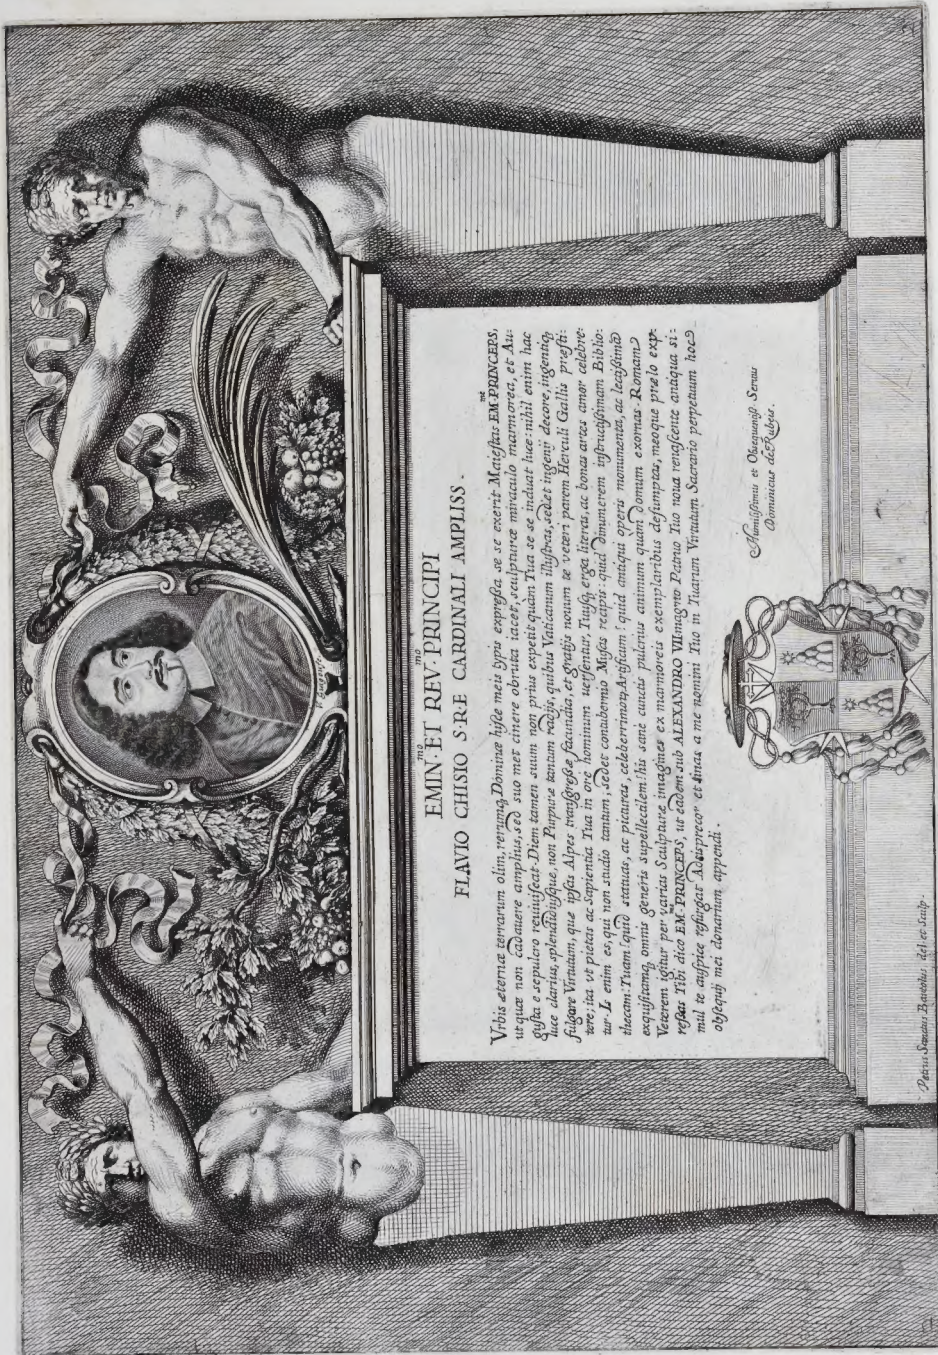 EMIN.mo ET REV.mo PRINCIPI
FLAVIO CHISIO S·R·E· CARDINALI AMPLISS.
Vrbis æternæ terrarum olim, rerumq; Dominæ hisce meis typis expressa se se exerit Maiestas EM.me PRINCEPS,
ut quæ non cadauere amplius, sed suo met cinere obruta iacet, sculpturæ miraculo marmorea, et Au:
gusta e sepulcro reuiuiscat. Diem tamen suum non prius expetit quam Tua se se induat luce: nihil enim hac
luce clarius, splendidiusque, non Purpuræ tantum radijs, quibus Vaticanum illustras, sed et ingenij decore, ingentiq;
fulgore Virtutum, quæ ipsas Alpes transgressæ facundia, et gratijs nouum te veteri parem Herculi Gallis præsti:
tere; ita vt pietas ac Sapientia Tua in ore hominum uersentur, Tuusq; erga literas, ac bonas artes amor celebre:
tur. Is enim es, qui non studio tantum, sed et contubernio Musas recipis: quid enumerem instructissimam Biblio:
thecam Tuam! quid statuas, ac picturas, celeberrimorq; Artificum! quid antiqui operis monumenta, ac lectissimã
exquisitamq; omnis generis supellectilem! his sane cunctis pulcrius animum quam domum exornas. Romam
Veterem igitur per varias Sculpturæ imagines ex marmoreis exemplaribus desumptas, meoque prælo exp:
ressas Tibi dico EM.me PRINCEPS, ut eadem sub ALEXANDRO VII magno Patruo Tuo noua renascente antiqua si:
mul te auspice resurgat. Adeisprecor et sinas a me nomini Tuo in Tuarum Virtutum Sacrario perpetuum hoc
obsequij mei donarium appendi.
Humilissimus et Obsequentiss. Seruus
Dominicus de Rubeis.
Petrus Sanctus Bartolus del. et Sculp.